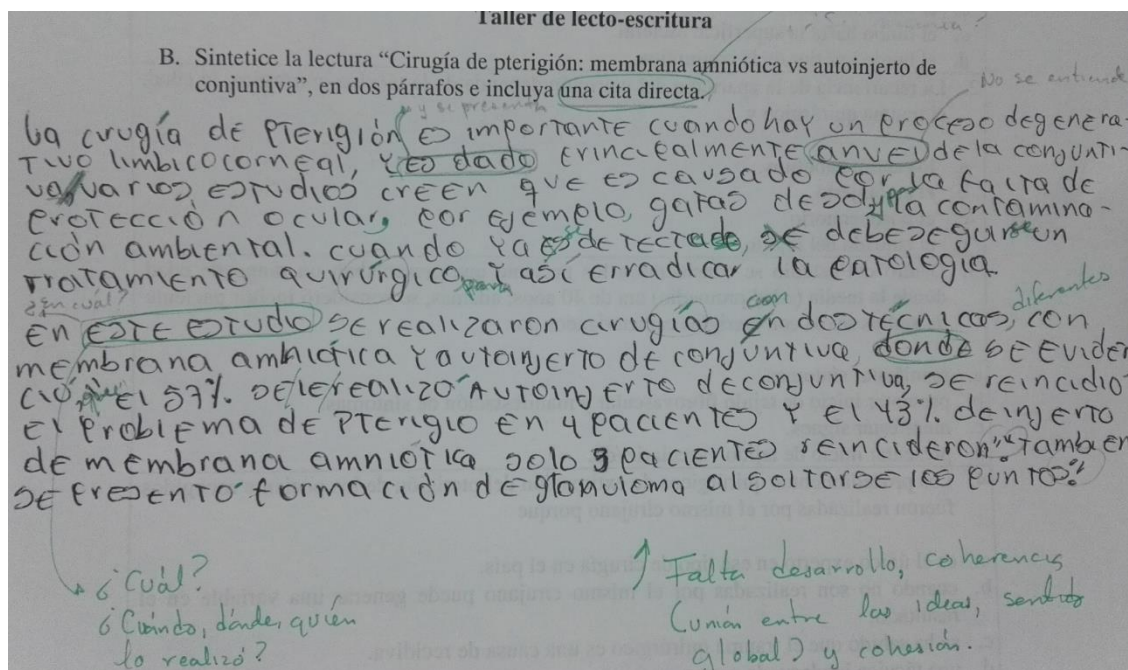 Taller de lecto-escritura
B. Sintetice la lectura “Cirugía de pterigión: membrana amniótica vs autoinjerto de
conjuntiva”, en dos párrafos e incluya una cita directa.
No se entiende
y se presenta
La cirugía de PTerigión es importante cuando hay un proceso degenera-
Tivo limbicocorneal, y es dado principalmente anvel de la conjunti-
va varios estudios creen que es causado por la falta de
protección ocular, por ejemplo, gafas de sol y la contamina-
ción ambiental. cuando ya es detectado, se debe seguir un
Tratamiento quirúrgico y así erradicar la patología.
¿En cuál?
para
con
diferentes
En este estudio se realizaron cirugías en dos técnicas, con
membrana amniotica y autoinjerto de conjuntiva, donde se eviden
ció, El 57% se le realizo Autoinjerto de conjuntiva, se reincidio
El problema de PTerigio en 4 pacientes y el 43% de injerto
de membrana amniótica solo 3 pacientes reincideron "también
se presento formación de glanuloma al soltarse los puntos"
¿Cuál?
¿Cuándo, dónde, quién
lo realizó?
Falta desarrollo, coherencia
(unión entre las ideas, sentido
global) y cohesión.